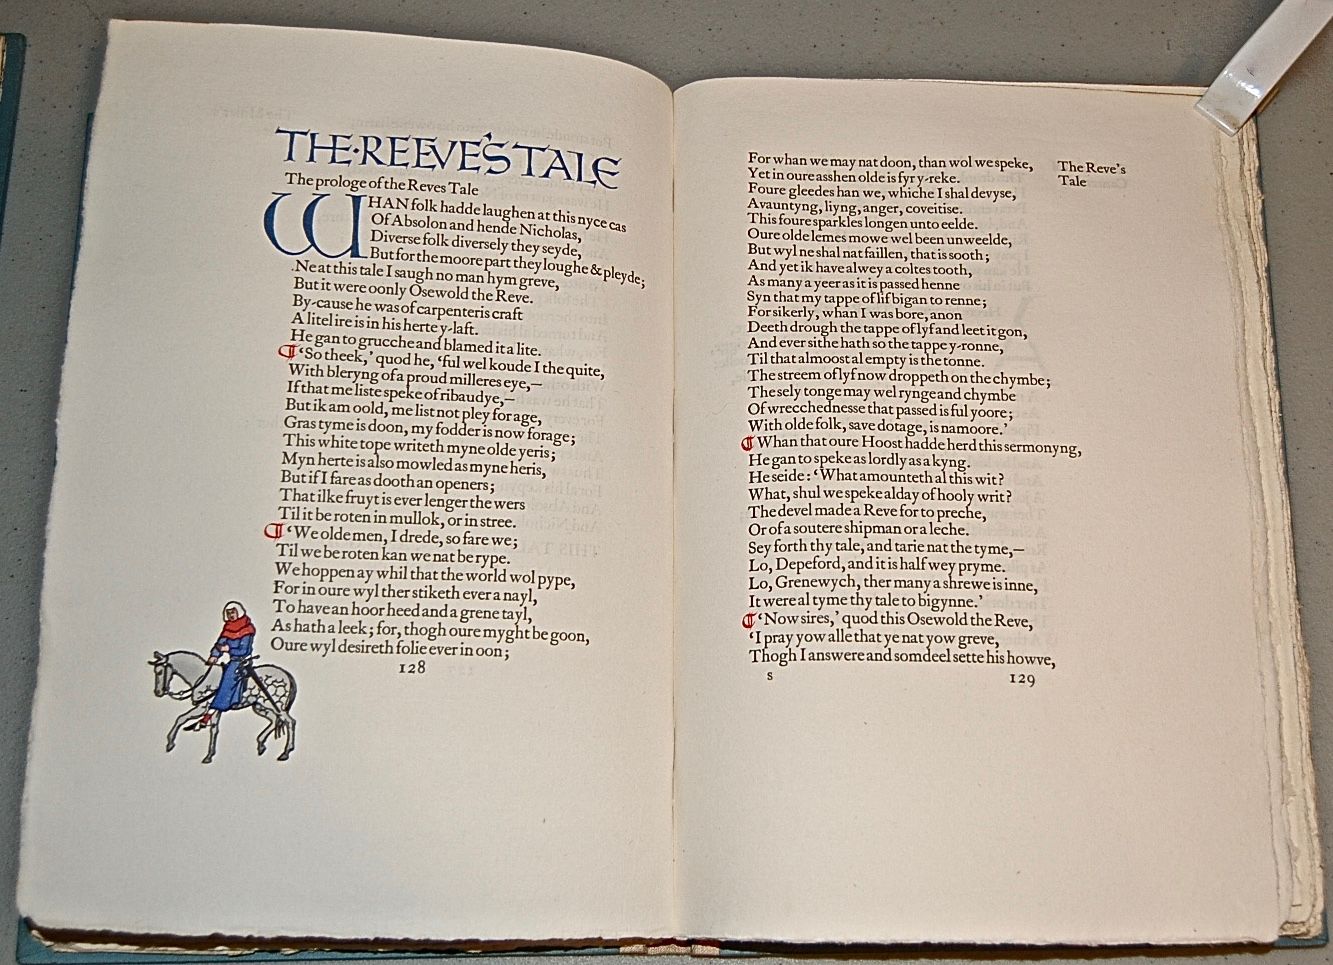 THE·REEVE'S TALE
The prologe of the Reves Tale
WHAN folk hadde laughen at this nyce cas
Of Absolon and hende Nicholas,
Diverse folk diversely they seyde,
But for the moore part they loughe & pleyde;
Ne at this tale I saugh no man hym greve,
But it were oonly Osewold the Reve.
By-cause he was of carpenteris craft
A litel ire is in his herte y-laft.
He gan to grucche and blamed it a lite.
¶ 'So theek,' quod he, 'ful wel koude I the quite,
With bleryng of a proud milleres eye,—
If that me liste speke of ribaudye,—
But ik am oold, me list not pley for age,
Gras tyme is doon, my fodder is now forage;
This white tope writeth myne olde yeris;
Myn herte is also mowled as myne heris,
But if I fare as dooth an openers;
That ilke fruyt is ever lenger the wers
Til it be roten in mullok, or in stree.
¶ 'We olde men, I drede, so fare we;
Til we be roten kan we nat be rype.
We hoppen ay whil that the world wol pype,
For in oure wyl ther stiketh ever a nayl,
To have an hoor heed and a grene tayl,
As hath a leek; for, thogh oure myght be goon,
Oure wyl desireth folie ever in oon;
128
For whan we may nat doon, than wol we speke,
Yet in oure asshen olde is fyr y-reke.
Foure gleedes han we, whiche I shal devyse,
Avauntyng, liyng, anger, coveitise.
This foure sparkles longen unto eelde.
Oure olde lemes mowe wel been unweelde,
But wyl ne shal nat faillen, that is sooth;
And yet ik have alwey a coltes tooth,
As many a yeer as it is passed henne
Syn that my tappe of lif bigan to renne;
For sikerly, whan I was bore, anon
Deeth drough the tappe of lyf and leet it gon,
And ever sithe hath so the tappe y-ronne,
Til that almoost al empty is the tonne.
The streem of lyf now droppeth on the chymbe;
The sely tonge may wel rynge and chymbe
Of wrecchednesse that passed is ful yoore;
With olde folk, save dotage, is namoore.'
¶ Whan that oure Hoost hadde herd this sermonyng,
He gan to speke as lordly as a kyng.
He seide: 'What amounteth al this wit?
What, shul we speke alday of hooly writ?
The devel made a Reve for to preche,
Or of a soutere shipman or a leche.
Sey forth thy tale, and tarie nat the tyme,—
Lo, Depeford, and it is half wey pryme.
Lo, Grenewych, ther many a shrewe is inne,
It were al tyme thy tale to bigynne.'
¶ 'Now sires,' quod this Osewold the Reve,
'I pray yow alle that ye nat yow greve,
Thogh I answere and somdeel sette his howve,
s
129
The Reve's
Tale